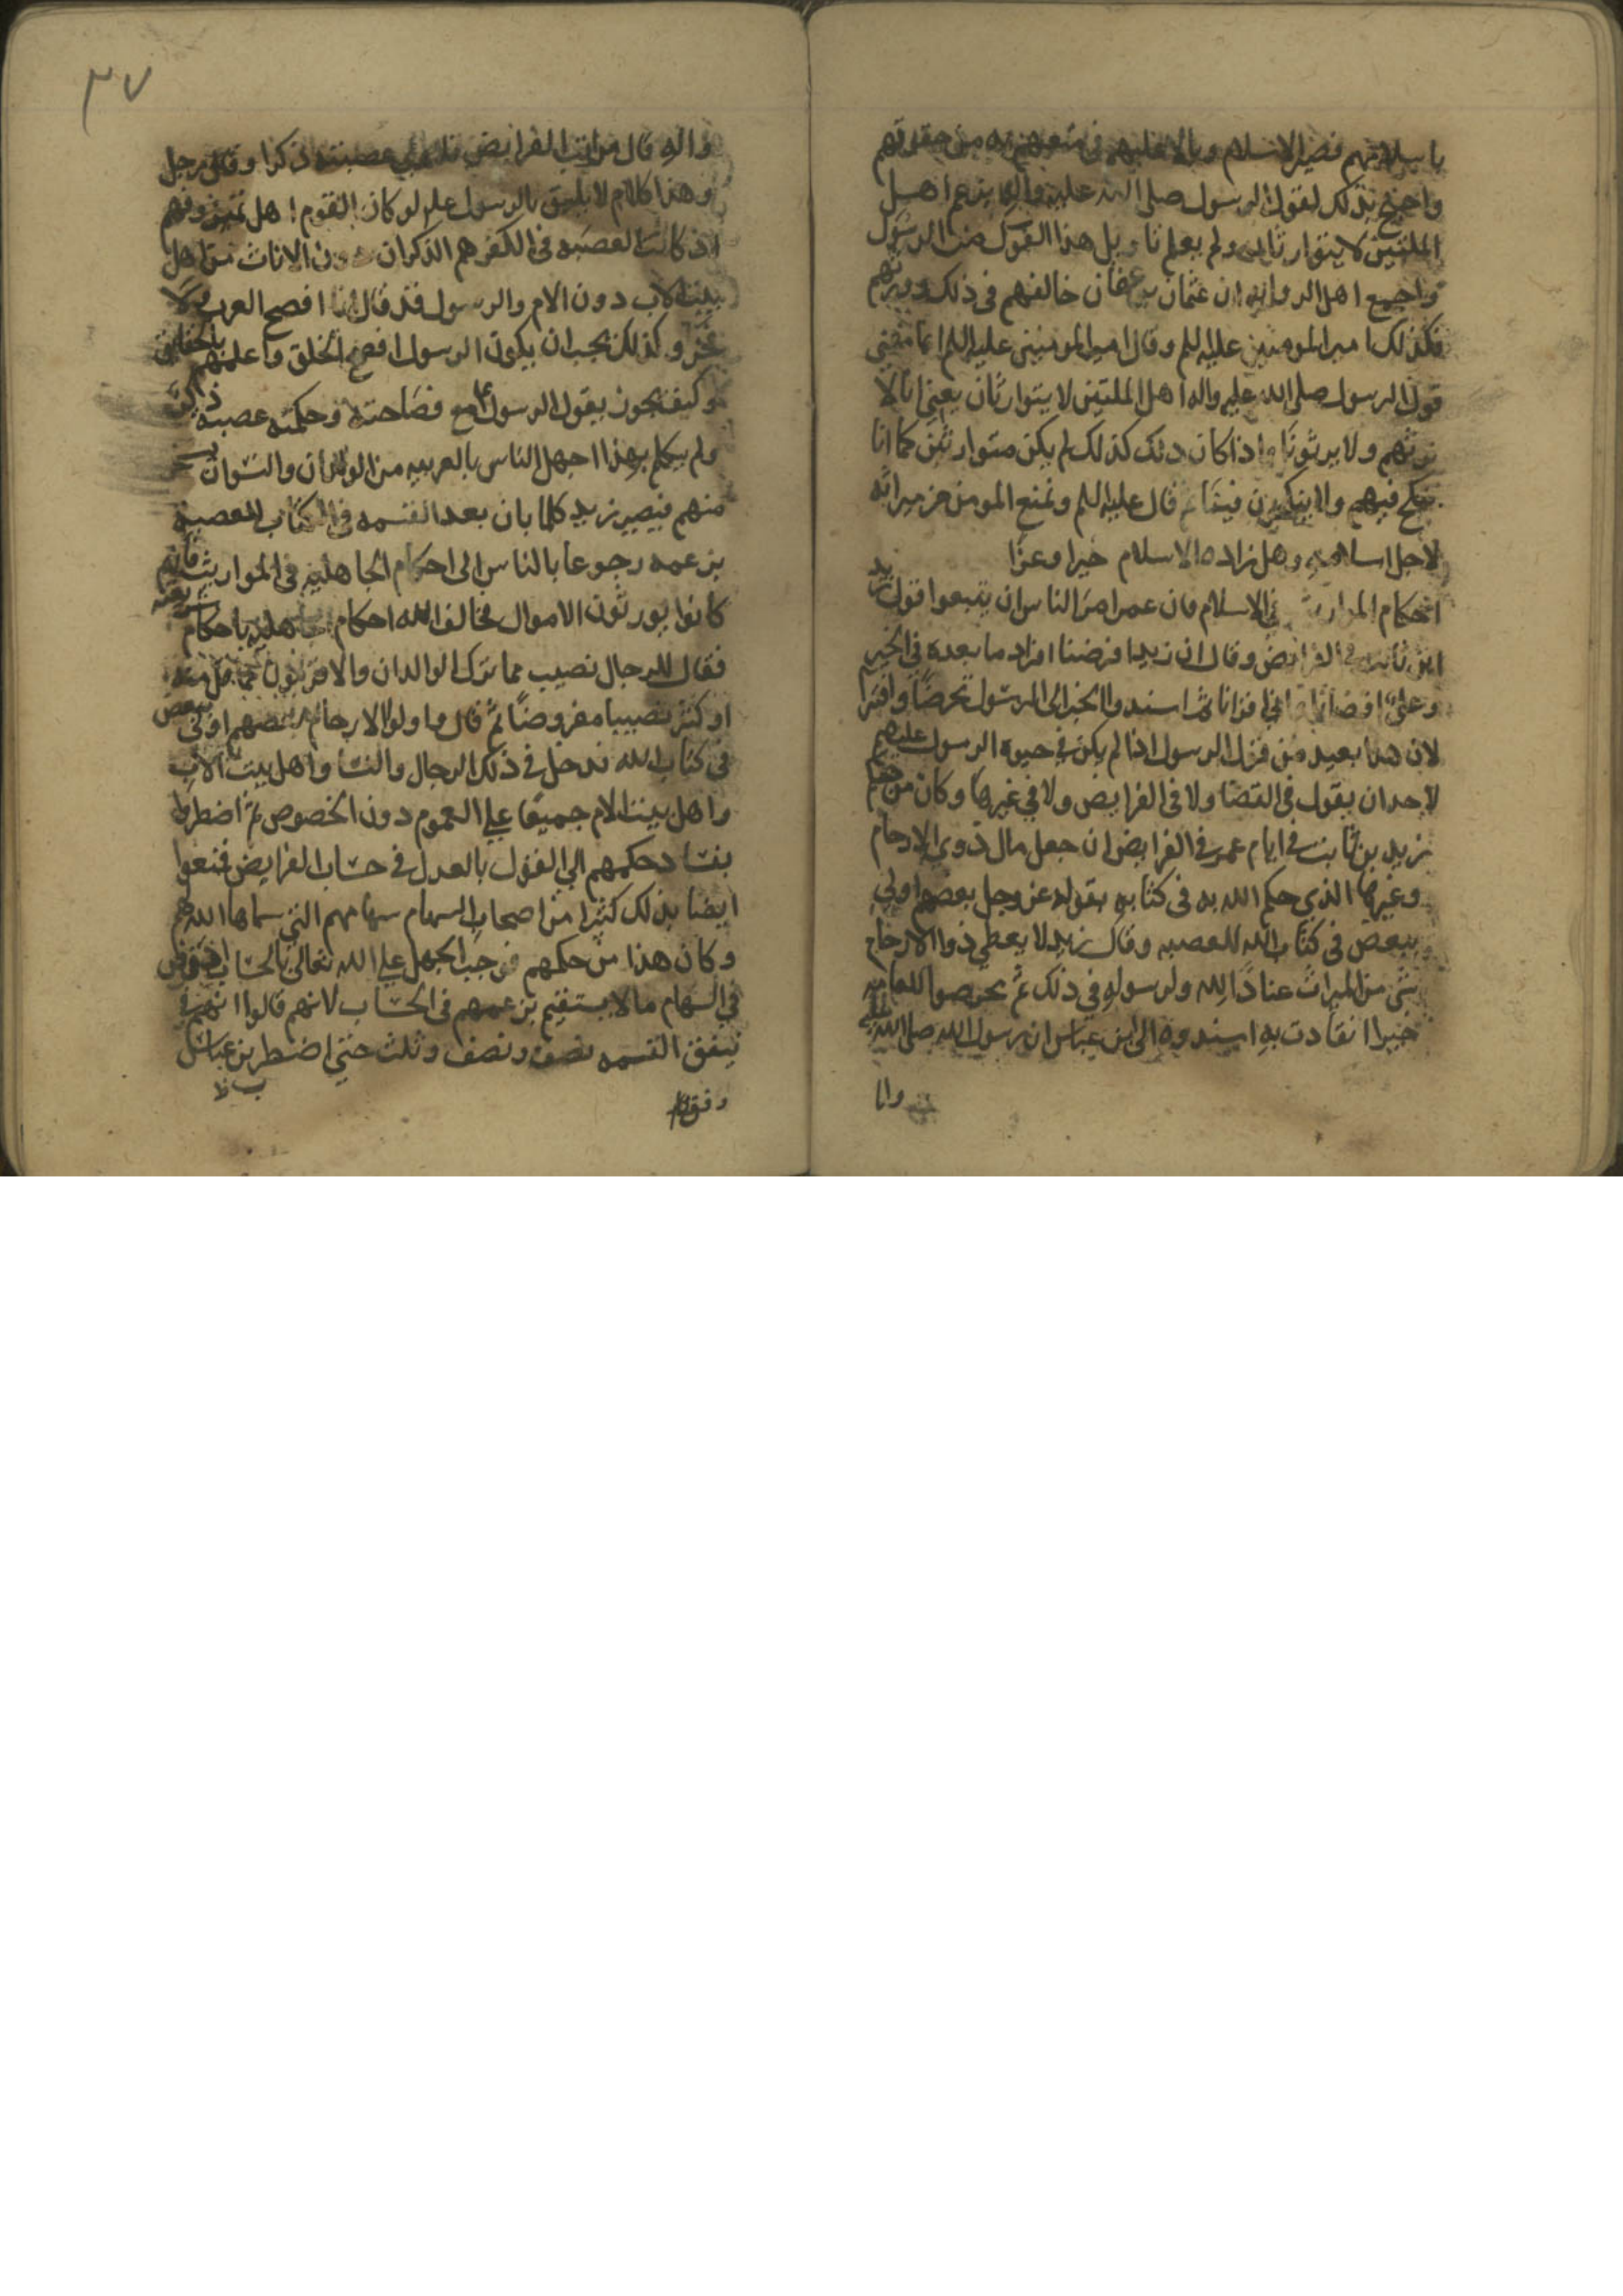 باسلامهم فصير الاسلام وبالا عليهم في منعهم به من حقوقهم
واحتج بذلك لقول الرسول صلى الله عليه واله بزعم اهل
الملتين لا يتوارثان ولم يعلم تاويل هذا القول من الرسول
واجمع اهل الروايه ان عثمان بن عفان خالفهم في ذلك وورثهم
فكذلك امير المومنين عليه السلم وقال امير المومنين عليه السلم انما معنى
قول الرسول صلى الله عليه واله اهل الملتين لا يتوارثان يعني انا لا
نرثهم ولا يرثونا واذا كان ذلك كذلك لم يكن متوارثين كما انا
ننكح فيهم ولا ينكحون فينا ثم قال عليه السلم ونمنع المومن من ميراثه
لاجل اسلامه وهل زاده الاسلام خيرا وعزا
احكام المواريث في الاسلام فان عمر امر الناس ان يتبعوا قول زيد
ابن ثابت في الفرايض وقال ان زيدا افرضنا فزاد ما بعده في الخبر
وعلي اقضانا وابي اقرانا ثم اسندوا الخبر الى الرسول تخرصا وافترا
لان هذا بعيد من قول الرسول اذا لم يكن في حيوة الرسول عليه السلم
لاحد ان يقول في القضا ولا في الفرايض ولا في غيرها وكان من حكم
زيد بن ثابت في ايام عمر في الفرايض ان جعل مال ذوي الارحام
وغيرها الذي حكم الله به في كتابه بقوله عز وجل بعضهم اولى
ببعض في كتاب الله للعصبه وقال زيد لا يعطى ذوا الارحام
شي من الميراث عنادا لله ولرسوله في ذلك ثم تخرصوا للعامه
خبرا انقادت به اسندوه الى ابن عباس ان رسول الله صلى الله عليه
وا
واله قال من اتت الفرايض فلاولي عصبته ذكرا وقال رجل
وهذا كلام لا يليق بالرسول علم لو كان القوم اهل تميز وفهم
اذ كانت العصبه في الكفر هم الذكران دون الاناث من اهل
بيت الاب دون الام والرسول فقد قال انا افصح العرب ولا
فخر وكذلك يجب ان يكون الرسول افصح الخلق واعلمهم بالحقايق
وكيف يجوز يقول الرسول مع فصاحته وحكمته عصبه ذكر
ولم يتكلم بهذا اجهل الناس بالعربيه من الولدان والنسوان
منهم فيصير زيد كلما بان بعد القسمه في الكتاب للعصبه
بزعمه رجوعا بالناس الى احكام الجاهليه في المواريث فانهم
كانوا يورثون الاموال فخالف الله احكام الجاهليه باحكام شريعته
فقال للرجال نصيب مما ترك الوالدان والاقربون مما قل منه
او كثر نصيبا مفروضا ثم قال واولوا الارحام بعضهم اولى ببعض
في كتاب الله فدخل في ذلك الرجال والنسا واهل بيت الاب
واهل بيت الام جميعا على العموم دون الخصوص ثم اضطرهم
فساد حكمهم الى القول بالعول في حساب الفرايض فمنعوا
ايضا بذلك كثيرا من اصحاب السهام سهامهم التي سماها الله لهم
وكان هذا من حكمهم فوجب الجهل على الله تعالى بالحساب اذ فرض
في السهام ما لا يستقيم بزعمهم في الحساب لانهم قالوا انهم في
يتفق القسمه نصف ونصف وثلث حتى اضطر بن عباس